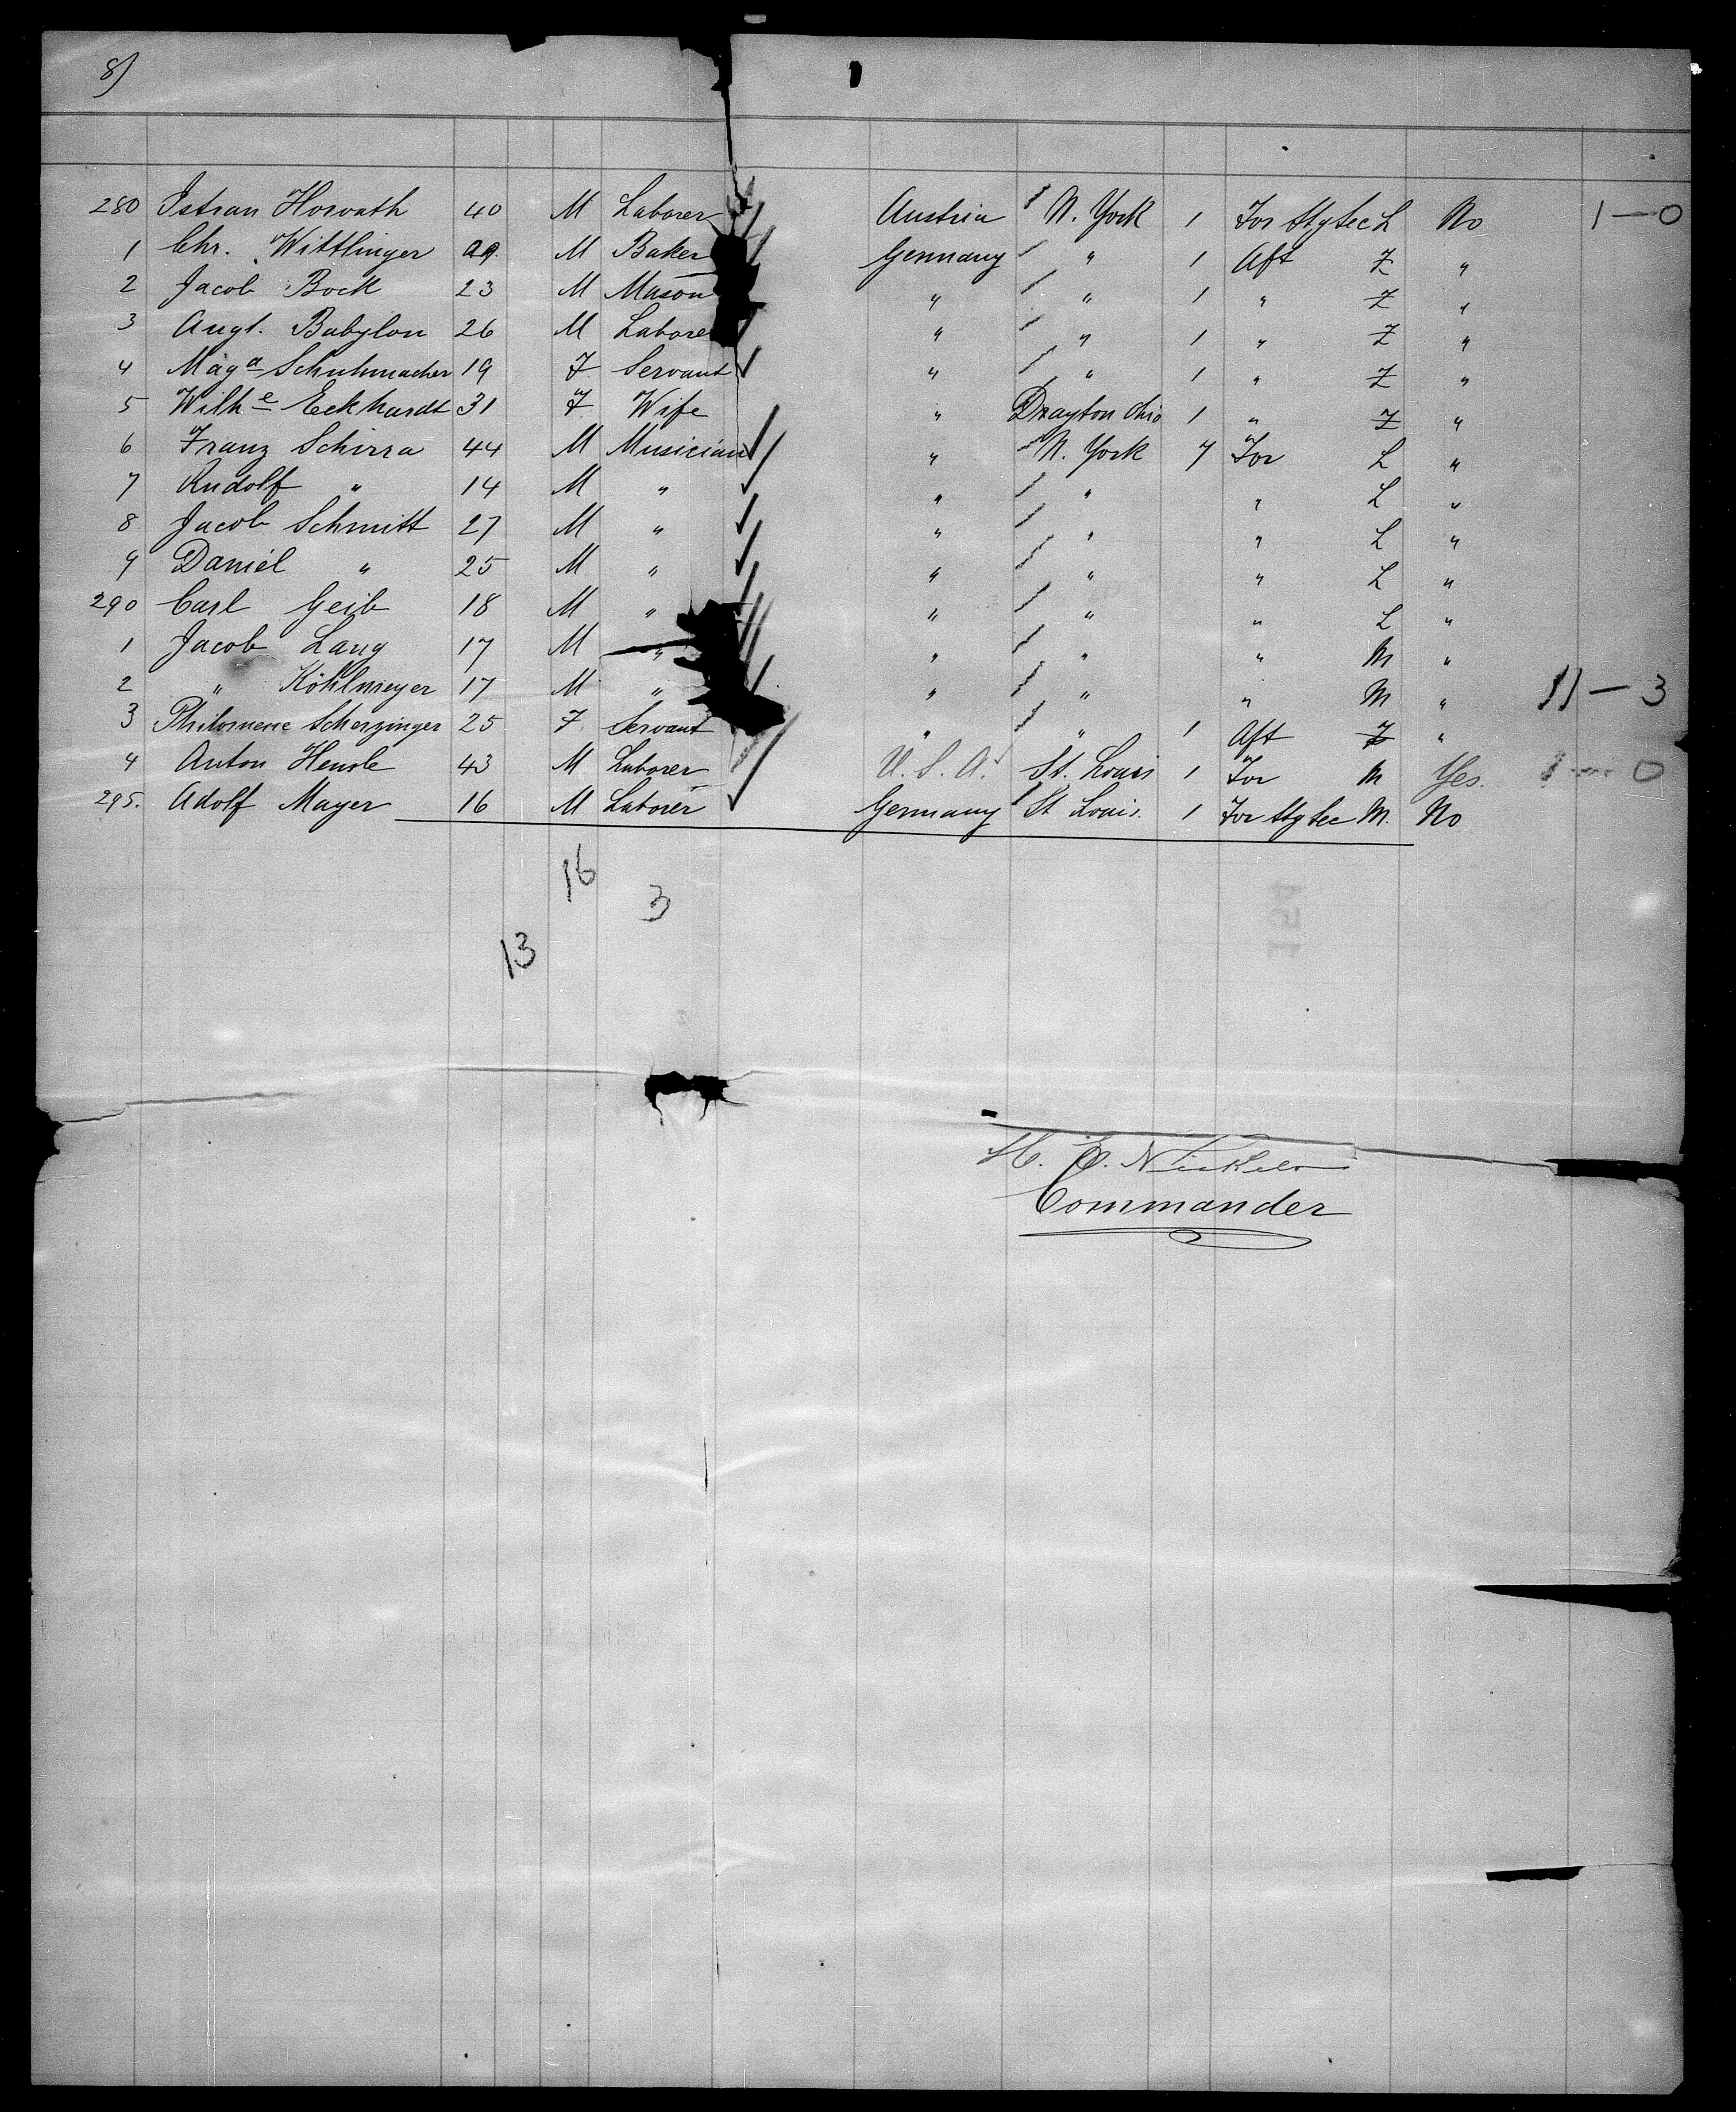 8)
280 Istvan Horvath 40 M Laborer Austria N. York 1 For Stg tec L No 1 — 0
1 Chr. Wittlinger M Baker Germany " 1 Aft Z "
2 Jacob Bock 23 M Mason " " 1 " Z "
3 Augt. Babylon 26 M Laborer " " 1 " Z "
4 Maga Schuhmacher 19 F Servant " " 1 " Z "
5 Wilhe Eckhardt 31 F Wife " Drayton Ohio 1 " Z "
6 Franz Schirra 44 M Musician " N. York 7 For L "
7 Rudolf " 14 M " " " " L "
8 Jacob Schmitt 27 M " " " " L "
9 Daniel " 25 M " " " " L "
290 Carl Geib 18 M " " " " L "
1 Jacob Lang 17 M " " " " M "
2 " Köhlmeyer 17 M " " " " M " 11 — 3
3 Philomene Scherzinger 25 F Servant " " 1 Aft Z "
4 Anton Hensle 43 M Laborer U. S. A. St. Louis 1 For M Yes. 1 — 0
295. Adolf Mayer 16 M Laborer Germany St Louis. 1 For Stg tec M. No
16
3
13
H. E. Nickels
Commander